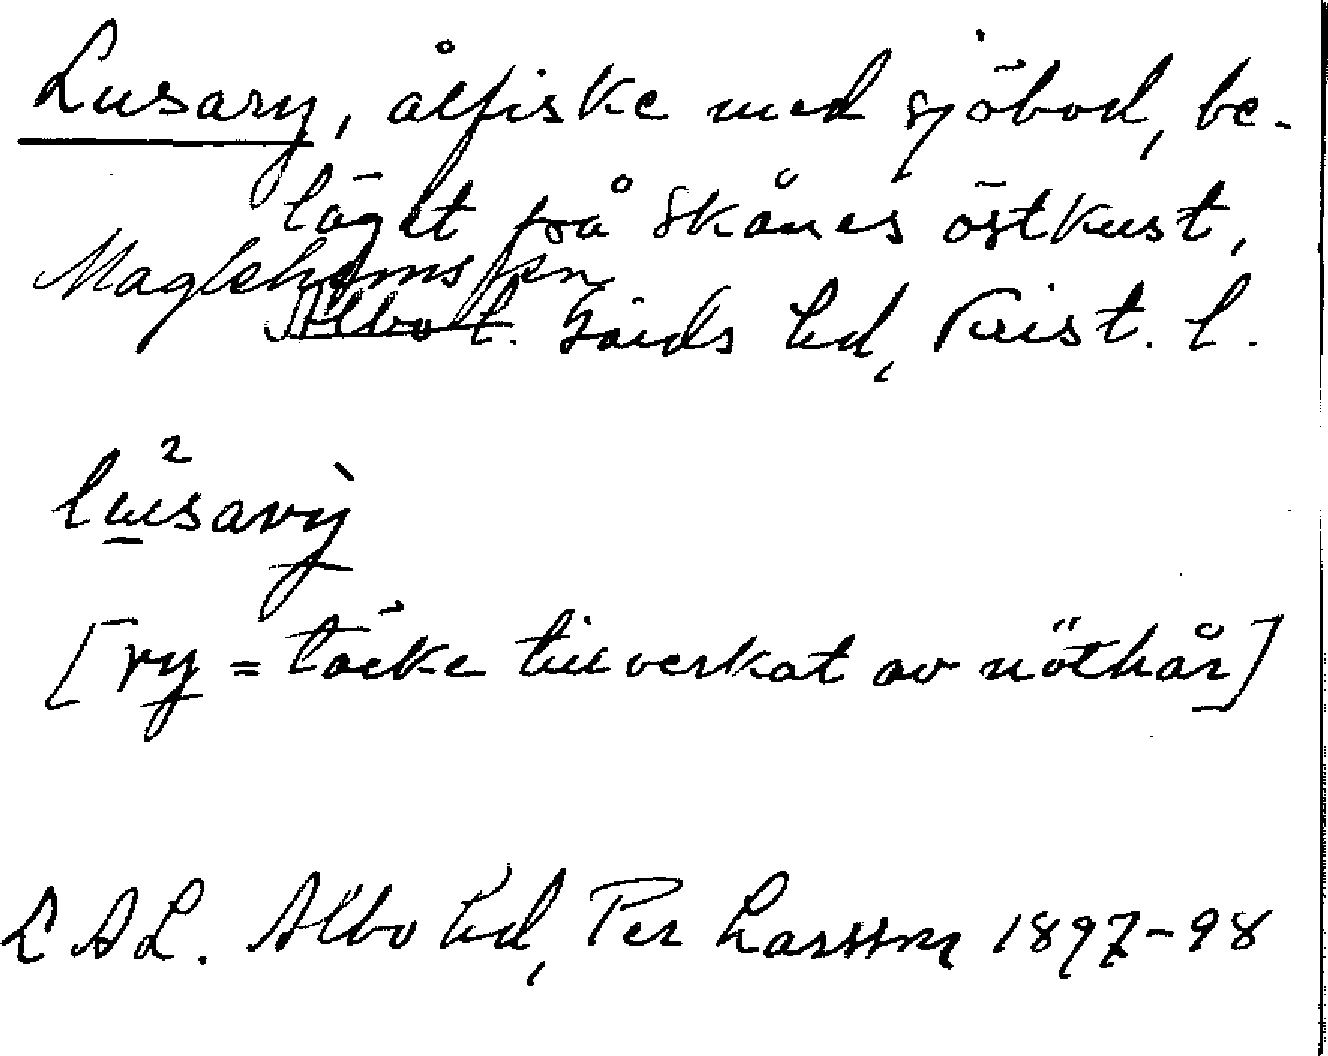 Lusary, ålfiske med sjöbod, be-
läget på Skånes östkust,
Maglehems sn
Albo l. Gärds hd, Krist. l.
2
lusarỳ
[ry = täcke tillverkat av nöthår]
LAL. Albo hd, Per Larsson 1897-98